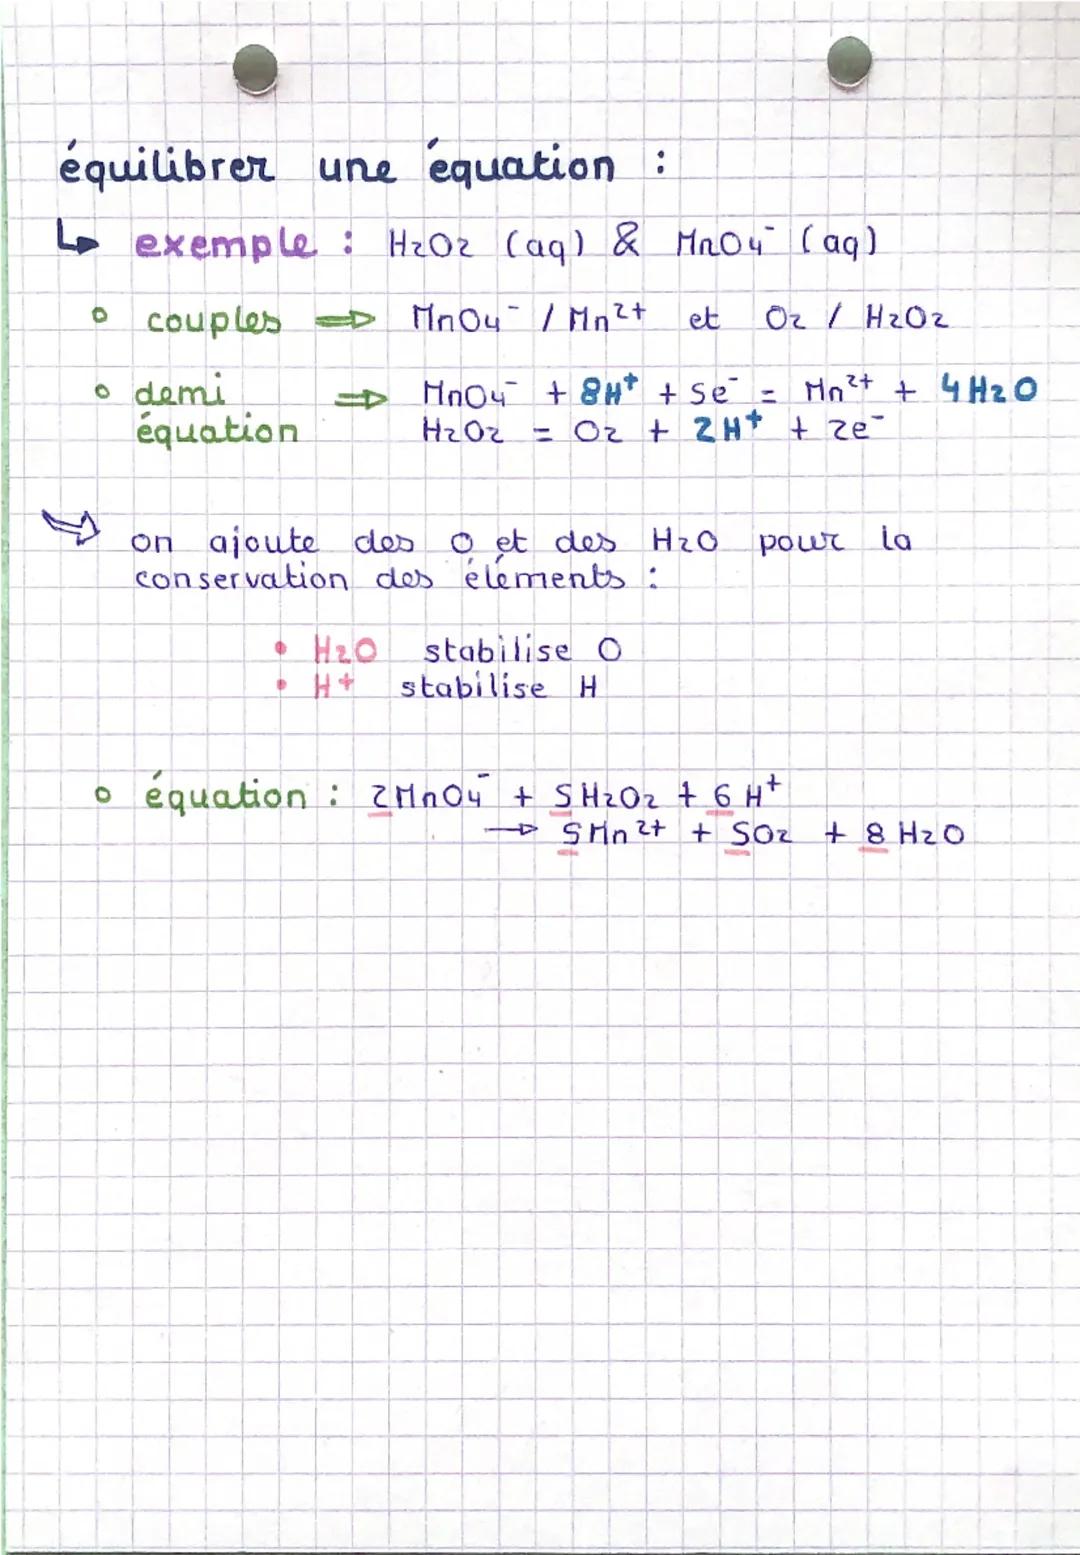 équilibrer une équation :
↳ exemple : H2O2 (aq) & MnO4⁻ (aq)
o couples ⇒ MnO4⁻ / Mn²⁺ et O2 / H2O2
o demi équation ⇒ MnO4⁻ + 8H⁺ + 5e⁻ = Mn²⁺ + 4H2O
H2O2 = O2 + 2H⁺ + 2e⁻
⇒ on ajoute des O et des H2O pour la
conservation des éléments :
• H2O stabilise O
• H+ stabilise H
o équation : 2MnO4⁻ + 5H2O2 + 6H⁺
→ 5Mn²⁺ + 5O2 + 8H2O